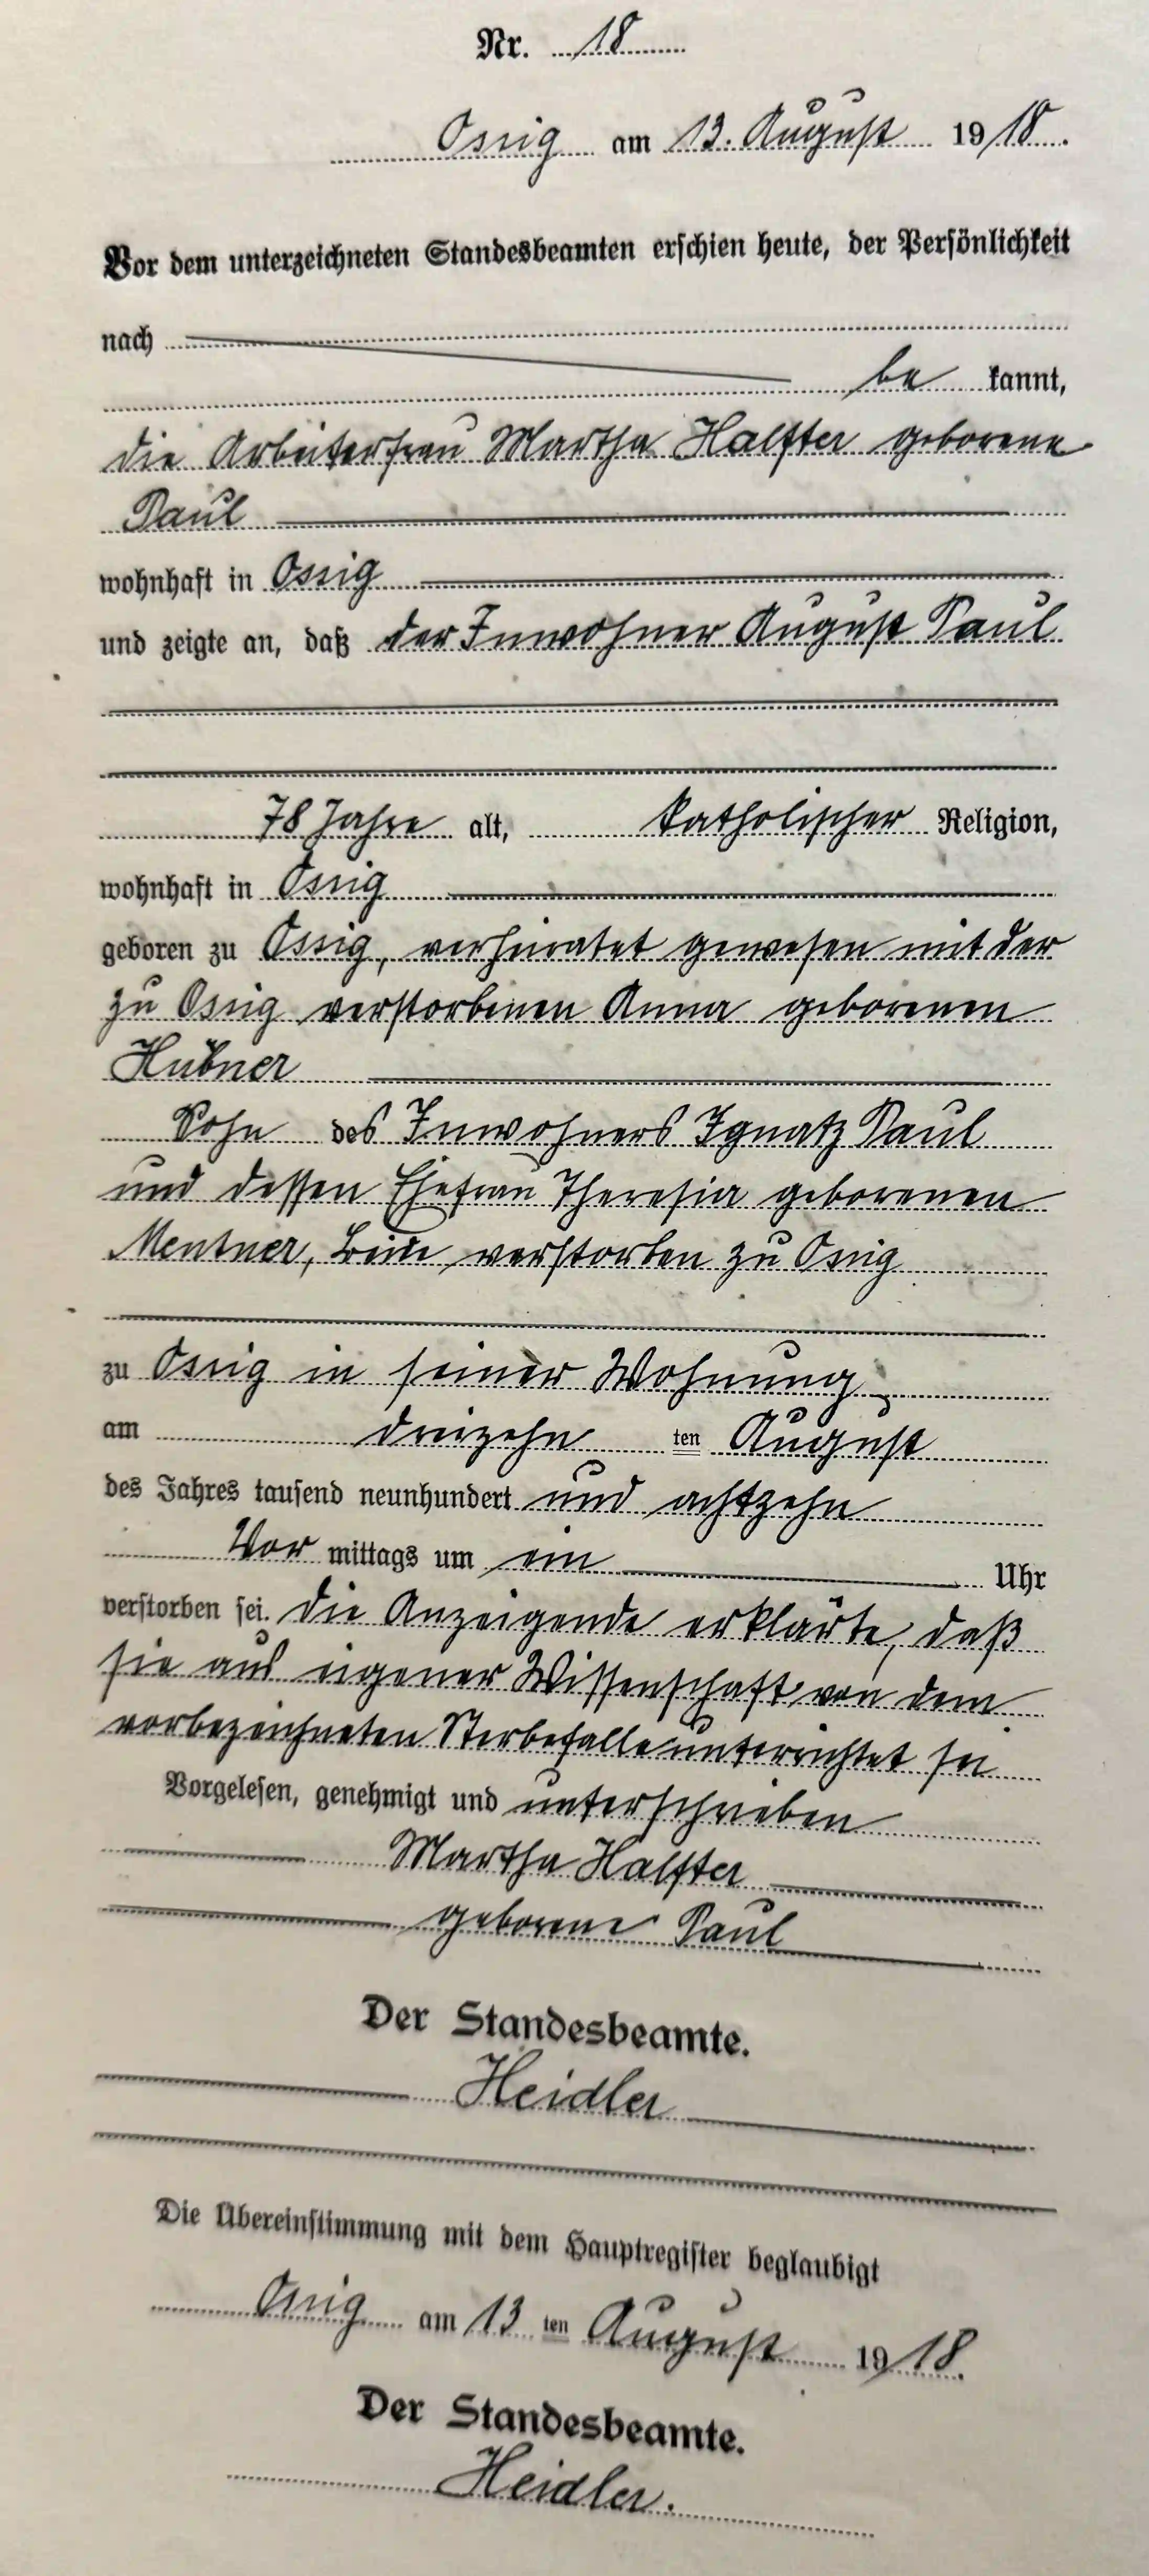 Nr. 18
Ossig am 13. August 1918.
Vor dem unterzeichneten Standesbeamten erschien heute, der Persönlichkeit
nach
be kannt,
die Arbeiterfrau Martha Halfter geborene
Paul
wohnhaft in Ossig
und zeigte an, daß der Inwohner August Paul
78 Jahre alt, katholischer Religion,
wohnhaft in Ossig
geboren zu Ossig, verheiratet gewesen mit der
zu Ossig verstorbenen Anna geborenen
Hübner
Sohn des Inwohners Ignatz Paul
und dessen Ehefrau Theresia geborenen
Mentner, beide verstorben zu Ossig
zu Ossig in seiner Wohnung
am dreizehn ten August
des Jahres tausend neunhundert und achtzehn
Vor mittags um ein Uhr
verstorben sei. Die Anzeigende erklärte, daß
sie aus eigener Wissenschaft von dem
vorbezeichneten Sterbefalle unterrichtet sei
Vorgelesen, genehmigt und unterschrieben
Martha Halfter
geborene Paul
Der Standesbeamte.
Heidler
Die Übereinstimmung mit dem Hauptregister beglaubigt
Ossig am 13 ten August 1918.
Der Standesbeamte.
Heidler.